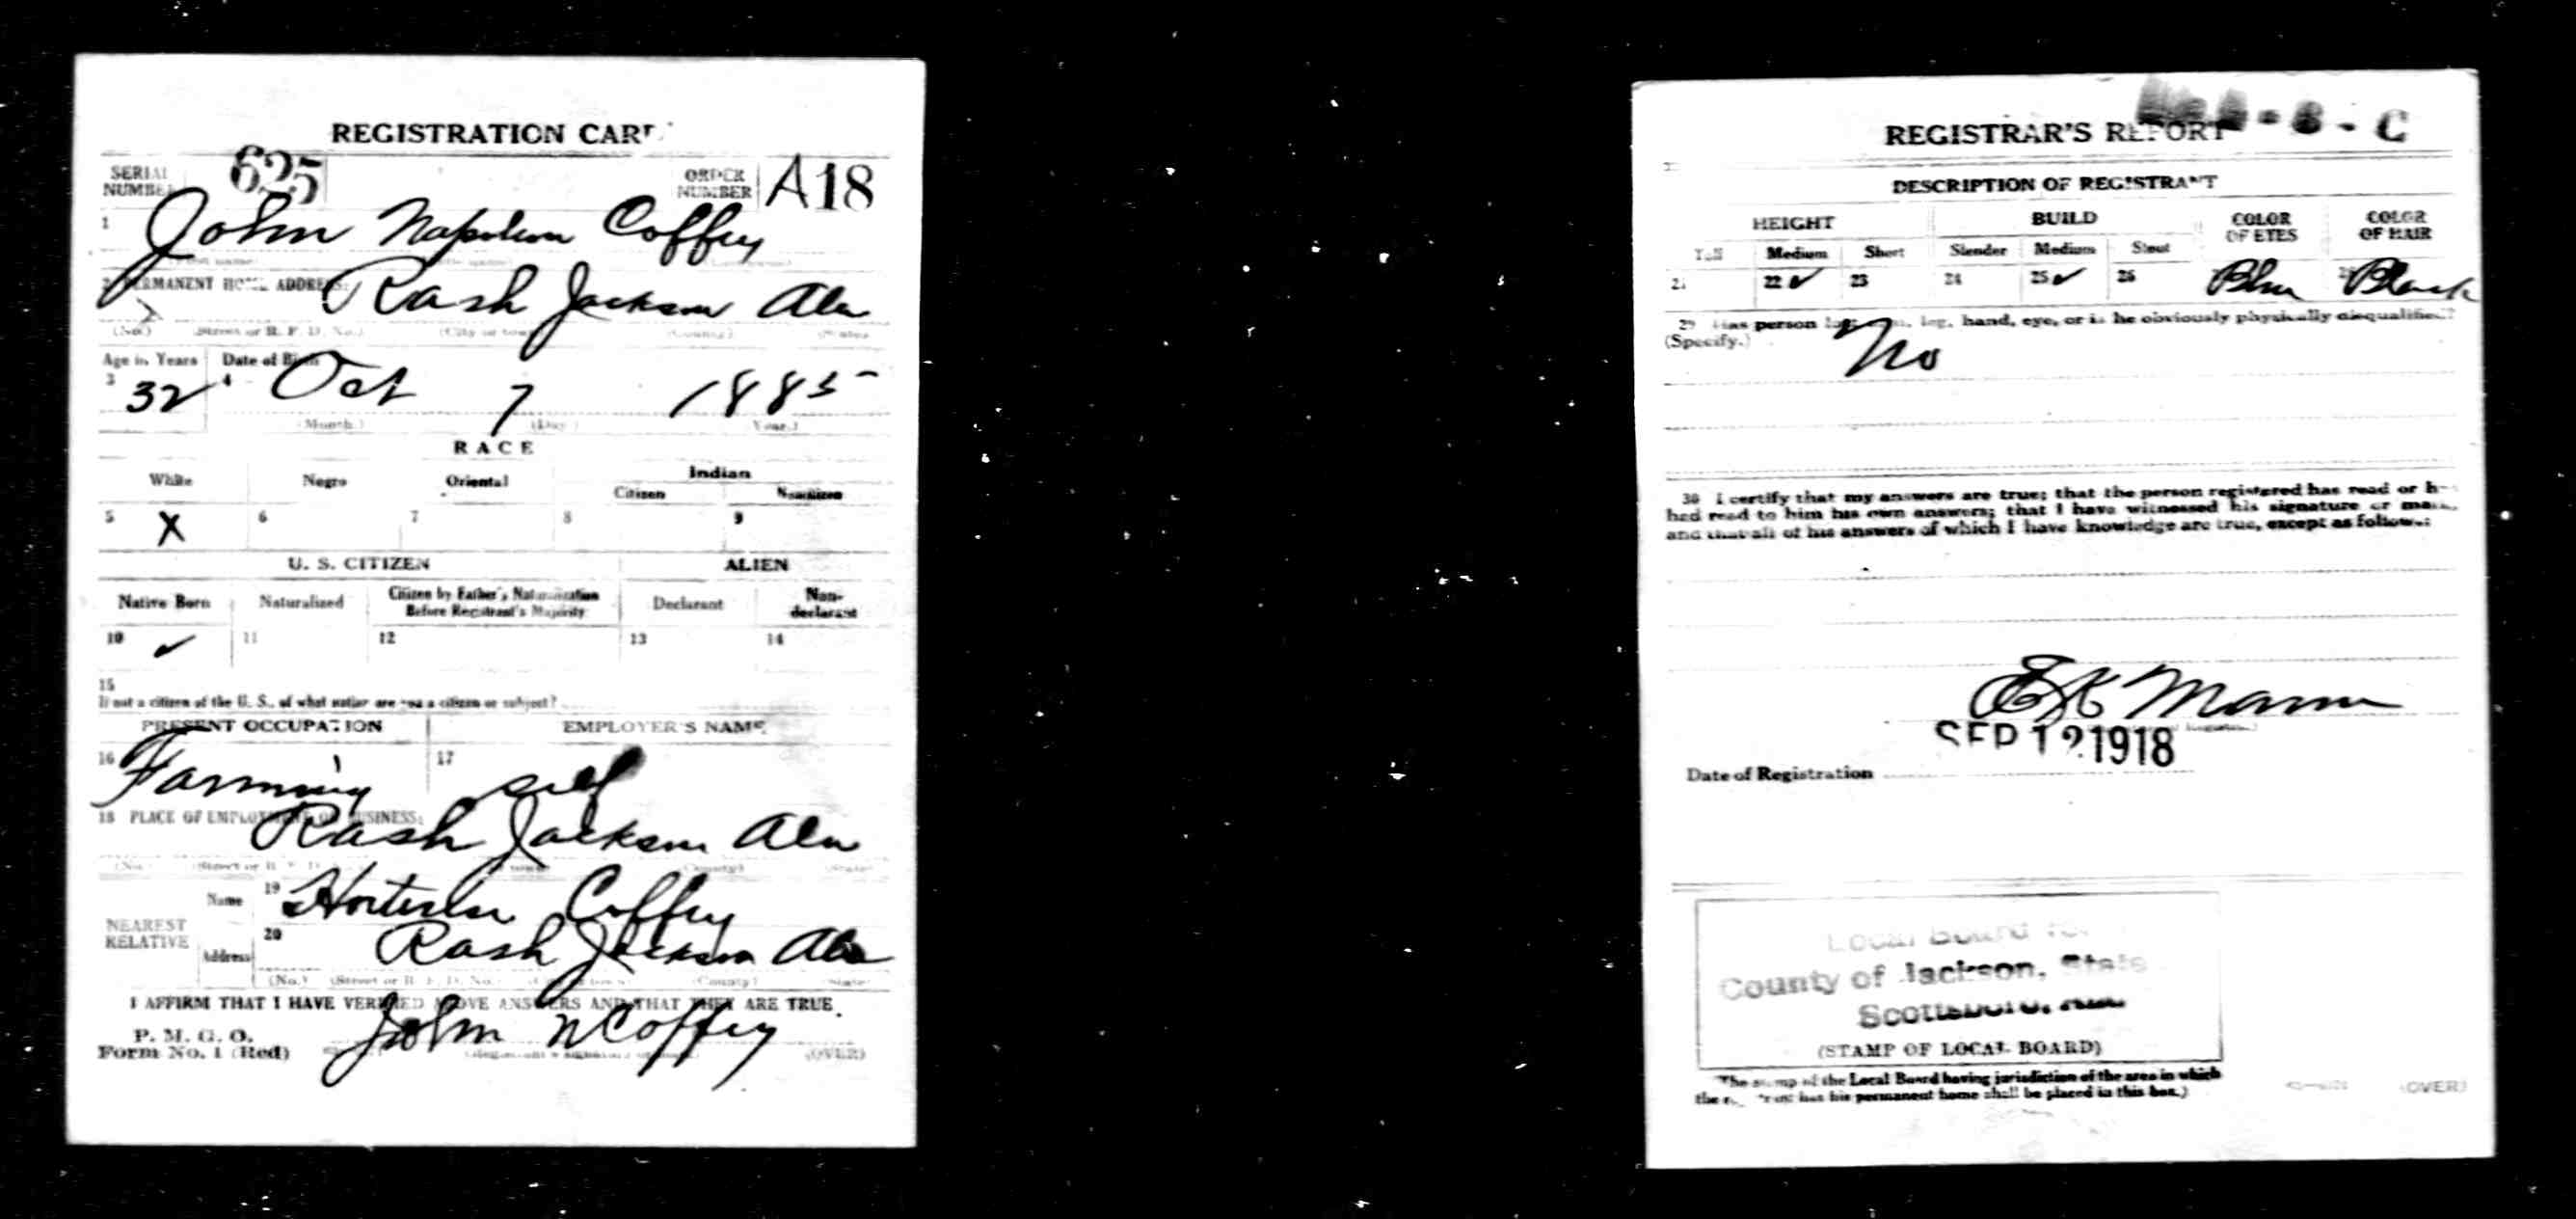 REGISTRATION CARD
SERIAL NUMBER 625 ORDER NUMBER A18
1 John Napoleon Coffey
2 PERMANENT HOME ADDRESS: Rash Jackson Ala
(No.) (Street or R. F. D. No.) (City or town) (County) (State)
Age in Years Date of Birth
3 32 4 Oct 7 1885
(Month.) (Day.) (Year.)
RACE
White Negro Oriental Indian
Citizen Noncitizen
5 X 6 7 8 9
U. S. CITIZEN ALIEN
Native Born Naturalized Citizen by Father's Naturalization Before Registrant's Majority Declarant Non-declarant
10 ✓ 11 12 13 14
15
If not a citizen of the U. S., of what nation are you a citizen or subject?
PRESENT OCCUPATION EMPLOYER'S NAME
16 Farming 17 self
18 PLACE OF EMPLOYMENT OR BUSINESS:
Rash Jackson Ala
(No.) (Street or R. F. D. No.) (County) (State)
NEAREST RELATIVE Name 19 Coffey
Address 20 Rash Jackson Ala
(No.) (Street or R. F. D. No.) (City or town) (County) (State)
I AFFIRM THAT I HAVE VERIFIED ABOVE ANSWERS AND THAT THEY ARE TRUE.
P. M. G. O.
Form No. 1 (Red) John N Coffey (OVER)
REGISTRAR'S REPORT - 8 - C
DESCRIPTION OF REGISTRANT
HEIGHT BUILD COLOR OF EYES COLOR OF HAIR
Tall Medium Short Slender Medium Stout
21 22 ✓ 23 24 25 ✓ 26 Blue 28 Black
29 Has person lost arm, leg, hand, eye, or is he obviously physically disqualified?
(Specify.) No
30 I certify that my answers are true; that the person registered has read or has
had read to him his own answers; that I have witnessed his signature or mark,
and that all of his answers of which I have knowledge are true, except as follows:
Mann
Date of Registration SEP 12 1918
Local Board for
County of Jackson, State
Scottsboro, Ala.
(STAMP OF LOCAL BOARD)
(The stamp of the Local Board having jurisdiction of the area in which
the registrant has his permanent home shall be placed in this box.)
(OVER)